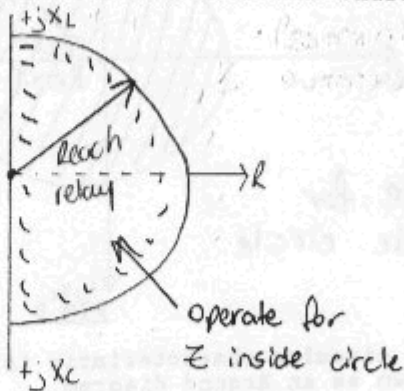 +jXL
Reach
R
relay
operate for
Z inside circle
+jXC